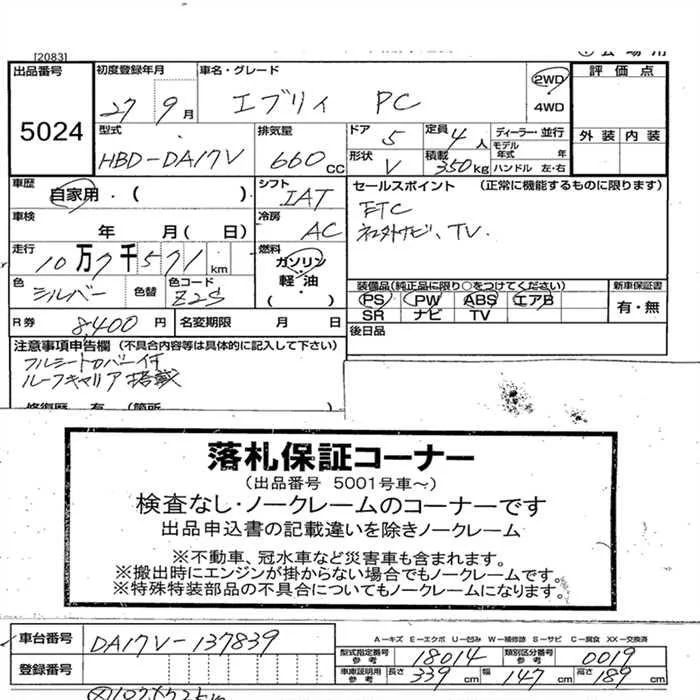 [2083]
出品番号
5024
初度登録年月
27 9月
車名・グレード
エブリィ PC
2WD
4WD
評価点
外装 内装
型式
HBD-DA17V
排気量
660 CC
ドア 5
定員 4人
形状 V
積載 350kg
ディーラー・並行
モデル年式 年
ハンドル 左・右
車歴
自家用・( )
シフト
IAT
セールスポイント (正常に機能するものに限ります)
ETC
社外ナビ、TV.
車検
年 月( 日)
冷房
AC
走行
10万7千571km
燃料
ガソリン
軽油
( )
色
シルバー
色替
色コード
Z2S
装備品(純正品に限り○をつけてください)
PS PW ABS エアB
SR ナビ TV
新車保証書
有・無
R券 8,400円
名変期限 月 日
後日品
注意事項申告欄(不具合内容等は具体的に記入して下さい)
フルシートカバー付
ルーフキャリア搭載
修復歴 有 (箇所
落札保証コーナー
(出品番号 5001号車〜)
検査なし・ノークレームのコーナーです
出品申込書の記載違いを除きノークレーム
※不動車、冠水車など災害車も含まれます。
※搬出時にエンジンが掛からない場合でもノークレームです。
※特殊特装部品の不具合についてもノークレームになります。
車台番号
DA17V-137839
登録番号
A-キズ E-エクボ U-凹み W-補修跡 S-サビ C-腐食 XX-交換済
型式指定番号参考 18014
類別区分番号参考 0019
車庫証明用参考 長さ 339cm 幅 147cm 高さ 189cm